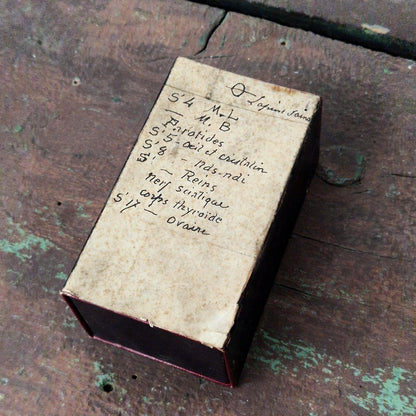 Lapin sain
S'4 M.L
— M.B
Parotides
S'5 - œil et cristallin
S'
S'8 - nds-ndi
— Reins
nerf sciatique
corps thyroïde
S'17 — Ovaire